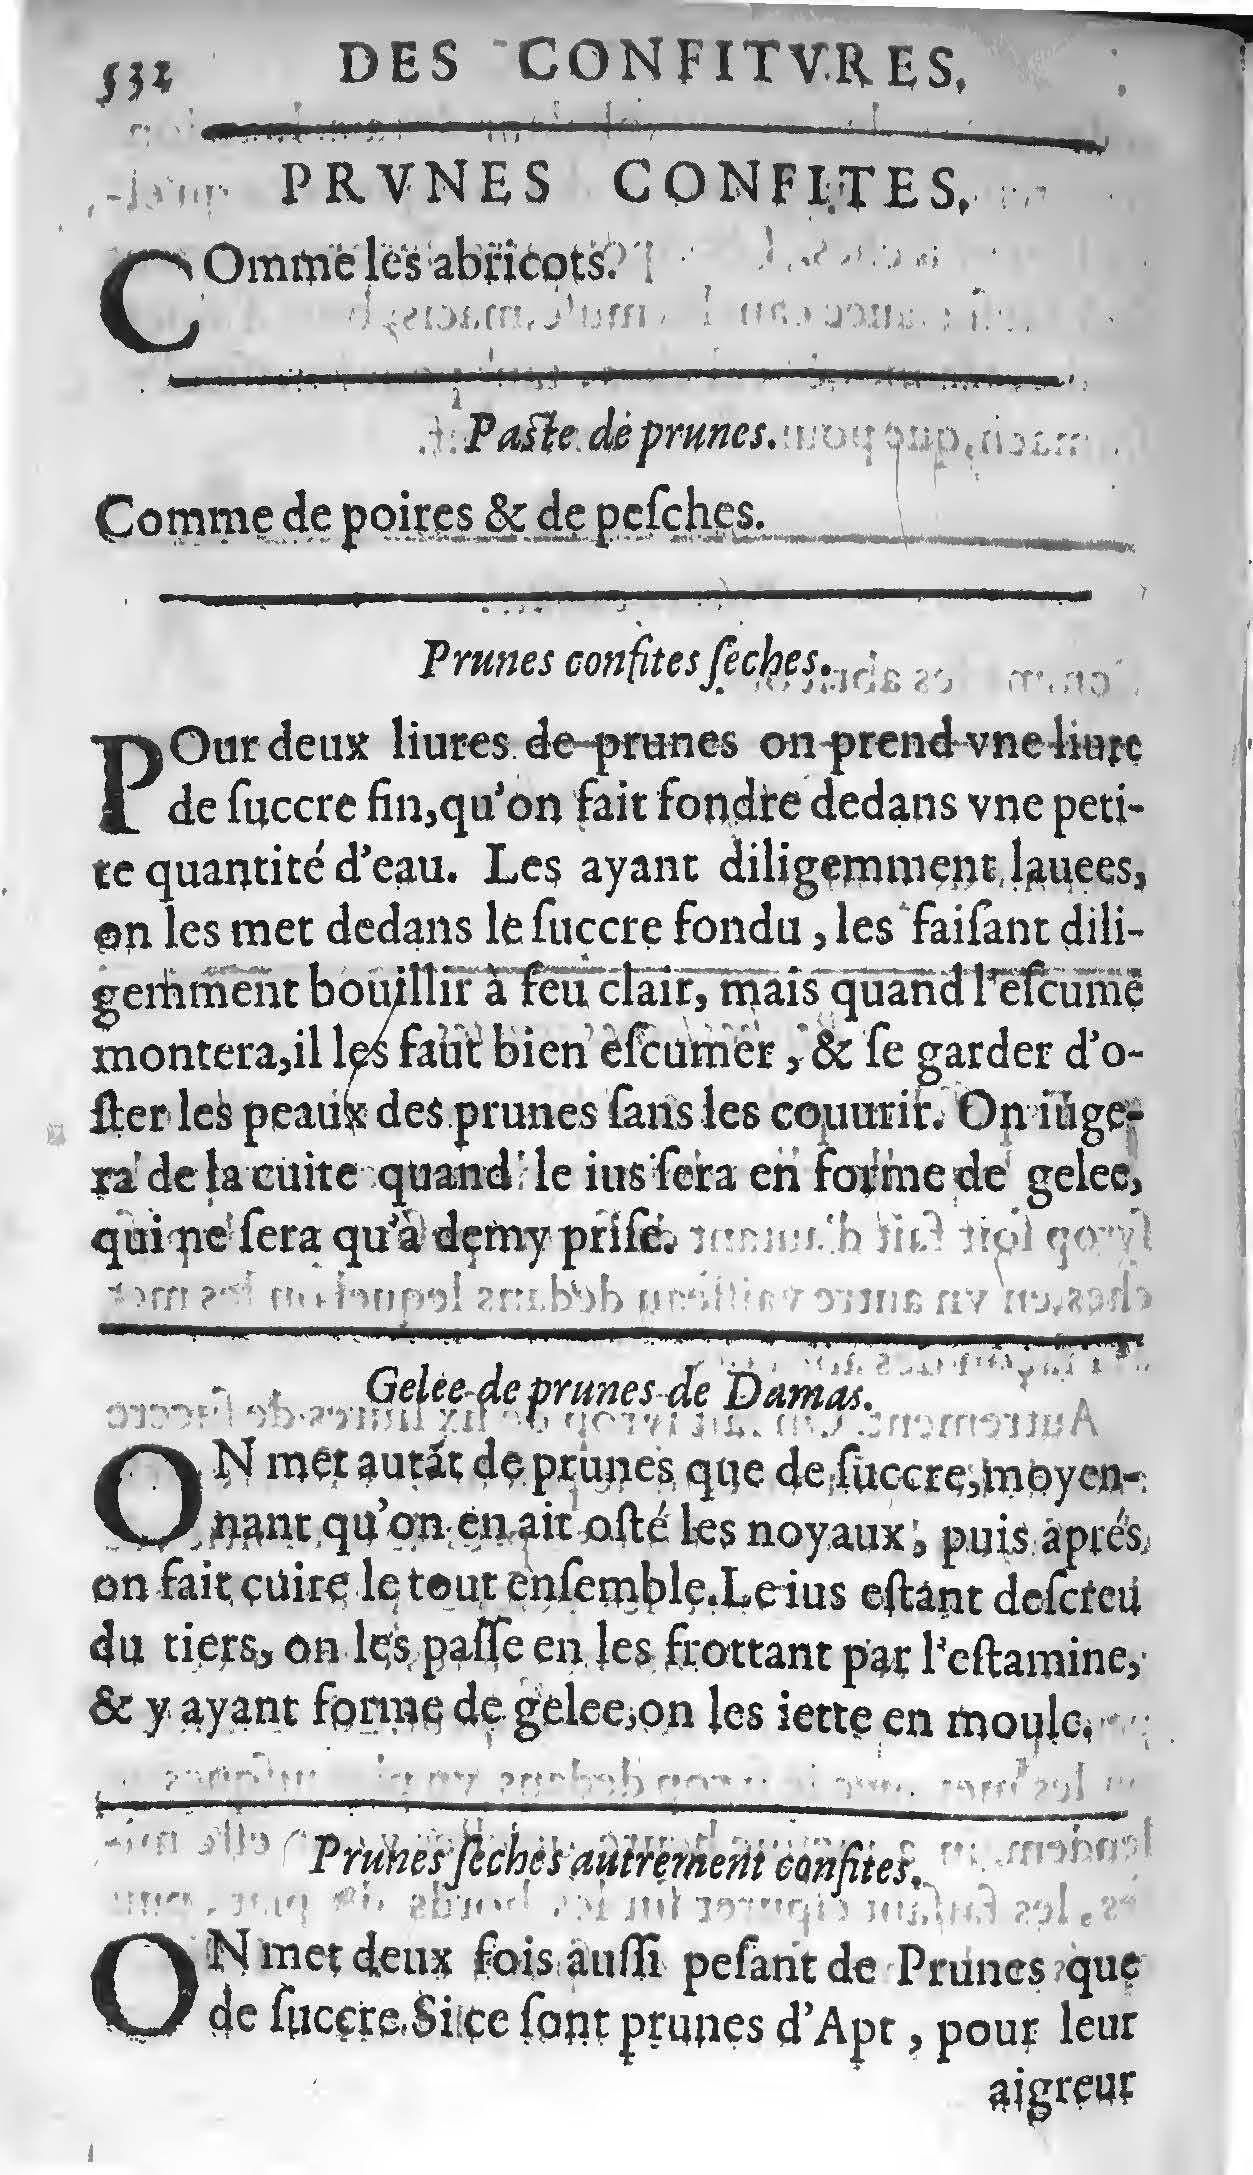 532 DES CONFITVRES.
PRVNES CONFITES.
COmme les abricots.
Paste de prunes.
Comme de poires & de peſches.
Prunes confites ſeches.
POur deux liures de prunes on prend vne liure
de ſuccre fin, qu'on fait fondre dedans vne peti-
te quantité d'eau. Les ayant diligemment lauees,
on les met dedans le ſuccre fondu, les faiſant dili-
gemment bouillir à feu clair, mais quand l'eſcume
montera, il les faut bien eſcumer, & ſe garder d'o-
ſter les peaux des prunes ſans les couurir. On iuge-
ra de la cuite quand le ius ſera en forme de gelee,
qui ne ſera qu'à demy priſe.
Gelee de prunes de Damas.
ON met autãt de prunes que de ſuccre, moyen-
nant qu'on en ait oſté les noyaux, puis aprés
on fait cuire le tout enſemble. Le ius eſtant deſcreu
du tiers, on les paſſe en les frottant par l'eſtamine,
& y ayant forme de gelee, on les iette en moule.
Prunes ſeches autrement confites.
ON met deux fois auſſi peſant de Prunes que
de ſuccre. Si ce ſont prunes d'Apt, pour leur
aigreur